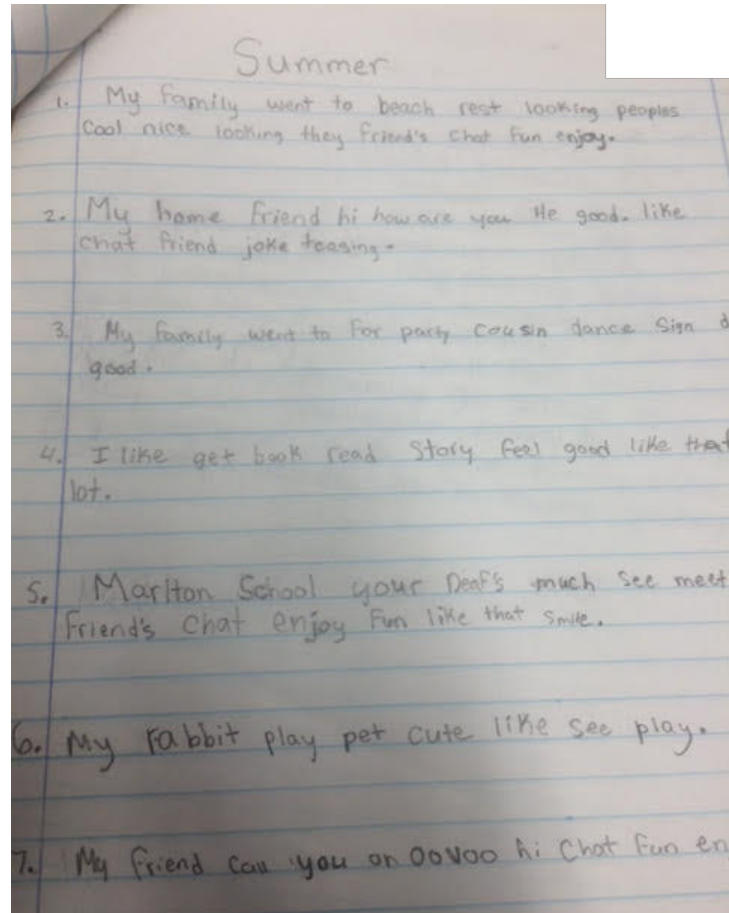 Summer
1. My family went to beach rest looking peoples
cool nice looking they friend's chat fun enjoy.
2. My home friend hi how are you He good. like
chat friend joke teasing.
3. My family went to for party cousin dance sign d
good.
4. I like get book read story feel good like that
lot.
5. Marlton School your Deaf's much see meet
friend's chat enjoy fun like that smile.
6. My rabbit play pet cute like see play.
7. My friend call you on oovoo hi chat fun en